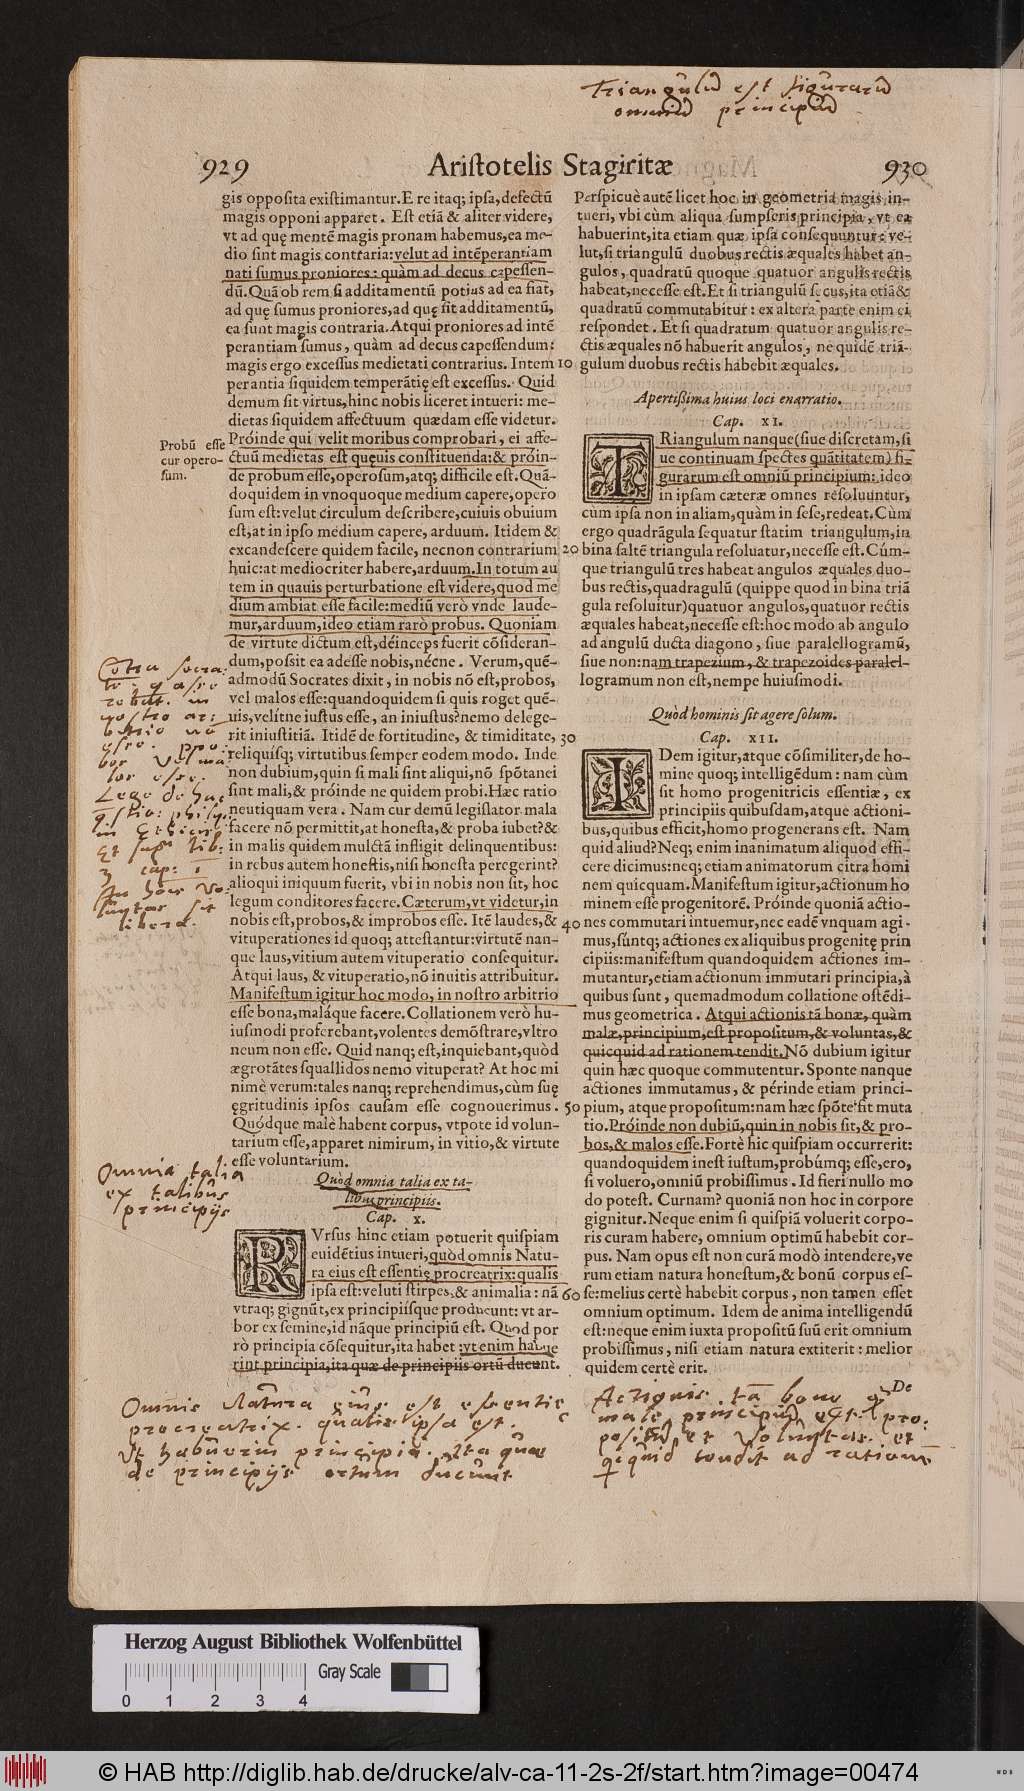 Triangulũ est figurarũ
omniũ principiũ
929 Aristotelis Stagiritæ 930
gis opposita existimantur. E re itaq; ipsa, defectũ
magis opponi apparet. Est etiã & aliter videre,
vt ad quę mentẽ magis pronam habemus, ea me-
dio sint magis contraria: velut ad intẽperantiam
nati sumus proniores: quàm ad decus capessen-
dũ. Quã ob rem si additamentũ potius ad ea fiat,
ad quę sumus proniores, ad quę fit additamentũ,
ea sunt magis contraria. Atqui proniores ad intẽ
perantiam sumus, quàm ad decus capessendum:
magis ergo excessus medietati contrarius. Intem 10
perantia siquidem temperãtię est excessus. Quid
demum sit virtus, hinc nobis liceret intueri: me-
dietas siquidem affectuum quædam esse videtur.
Próinde qui velit moribus comprobari, ei affe-
ctuũ medietas est quęuis constituenda: & próin-
de probum esse, operosum, atq; difficile est. Quã-
doquidem in vnoquoque medium capere, opero
sum est: velut circulum describere, cuiuis obuium
est, at in ipso medium capere, arduum. Itidem &
excandescere quidem facile, necnon contrarium 20
huic: at mediocriter habere, arduum. In totum au
tem in quauis perturbatione est videre, quod me
dium ambiat esse facile: mediũ verò vnde laude-
mur, arduum, ideo etiam rarò probus. Quoniam
de virtute dictum est, déinceps fuerit cõsideran-
dum, possit ea adesse nobis, nécne. Verum, quẽ-
admodũ Socrates dixit, in nobis nõ est, probos,
vel malos esse: quandoquidem si quis roget quẽ-
uis, velítne iustus esse, an iniustus? nemo delege-
rit iniustitiã. Itidẽ de fortitudine, & timiditate, 30
reliquisq; virtutibus semper eodem modo. Inde
non dubium, quin si mali sint aliqui, nõ spõtanei
sint mali, & próinde ne quidem probi. Hæc ratio
neutiquam vera. Nam cur demũ legislator mala
facere nõ permittit, at honesta, & proba iubet? &
in malis quidem mulctã infligit delinquentibus:
in rebus autem honestis, nisi honesta peregerint?
alioqui iniquum fuerit, vbi in nobis non sit, hoc
legum conditores facere. Cæterum, vt videtur, in
nobis est, probos, & improbos esse. Itẽ laudes, & 40
vituperationes id quoq; attestantur: virtutẽ nan-
que laus, vitium autem vituperatio consequitur.
Atqui laus, & vituperatio, nõ inuitis attribuitur.
Manifestum igitur hoc modo, in nostro arbitrio
esse bona, maláque facere. Collationem verò hu-
iusmodi proferebant, volentes demõstrare, vltro
neum non esse. Quid nanq; est, inquiebant, quòd
ægrotãtes squallidos nemo vituperat? At hoc mi
nimè verum: tales nanq; reprehendimus, cùm suę
ęgritudinis ipsos causam esse cognouerimus. 50
Quódque malè habent corpus, vtpote id volun-
tarium esse, apparet nimirum, in vitio, & virtute
esse voluntarium.
Probũ esse
cur opero-
sum.
Cõtra Socra
Lege de hac
in Ethic
3 cap: 1
An homo vo
sit
libera.
Omnia talia
ex talibus
principijs
Quòd omnia talia ex ta-
libus principiis.
Cap. X.
RVrsus hinc etiam potuerit quispiam
euidẽtius intueri, quòd omnis Natu-
ra eius est essentię procreatrix: qualis
ipsa est: veluti stirpes, & animalia: nã 60
vtraq; gignũt, ex principiísque producunt: vt ar-
bor ex semine, id nãque principiũ est. Quod por
rò principia cõsequitur, ita habet: vt enim habue
rint principia, ita quæ de principiis ortũ ducunt.
Omnis Natura eius est essentie
procreatrix. qualis ipsa est.
Vt habuerin principia. Ita quae
de principijs ortum ducunt
Perspicuè autẽ licet hoc in geometria magis in-
tueri, vbi cùm aliqua sumpseris principia, vt ea
habuerint, ita etiam quæ ipsa consequuntur: ve-
lut, si triangulũ duobus rectis æquales habet an-
gulos, quadratũ quoque quatuor angulis rectis
habeat, necesse est. Et si triangulũ secus, ita etiã &
quadratũ commutabitur: ex altera parte enim ei
respondet. Et si quadratum quatuor angulis re-
ctis æquales nõ habuerit angulos, ne quidẽ triã-
gulum duobus rectis habebit æquales.
Apertißima huius loci enarratio.
Cap. XI.
TRiangulum nanque (siue discretam, si
ue continuam spectes quãtitatem) fi-
gurarum est omniũ principium: ideo
in ipsam cæteræ omnes resoluuntur,
cùm ipsa non in aliam, quàm in sese, redeat. Cùm
ergo quadrãgula sequatur statim triangulum, in
bina saltẽ triangula resoluatur, necesse est. Cúm-
que triangulũ tres habeat angulos æquales duo-
bus rectis, quadragulũ (quippe quod in bina triã
gula resoluitur) quatuor angulos, quatuor rectis
æquales habeat, necesse est: hoc modo ab angulo
ad angulũ ducta diagono, siue paralellogramũ,
siue non: nam trapezium, & trapezoides paralel-
logramum non est, nempe huiusmodi.
Quòd hominis sit agere solum.
Cap. XII.
IDem igitur, atque cõsimiliter, de ho-
mine quoq; intelligẽdum: nam cùm
sit homo progenitricis essentiæ, ex
principiis quibusdam, atque actioni-
bus, quibus efficit, homo progenerans est. Nam
quid aliud? Neq; enim inanimatum aliquod effi-
cere dicimus: neq; etiam animatorum citra homi
nem quicquam. Manifestum igitur, actionum ho
minem esse progenitorẽ. Próinde quoniã actio-
nes commutari intuemur, nec eadẽ vnquam agi-
mus, súntq; actiones ex aliquibus progenitę prin
cipiis: manifestum quandoquidem actiones im-
mutantur, etiam actionum immutari principia, à
quibus sunt, quemadmodum collatione ostẽdi-
mus geometrica. Atqui actionis tã bonæ, quàm
malæ, principium, est propositum, & voluntas, &
quicquid ad rationem tendit. Nõ dubium igitur
quin hæc quoque commutentur. Sponte nanque
actiones immutamus, & périnde etiam princi-
pium, atque propositum: nam hæc spõte fit muta
tio. Próinde non dubiũ, quin in nobis sit, & pro-
bos, & malos esse. Fortè hic quispiam occurrerit:
quandoquidem in est iustum, probúmq; esse, ero,
si voluero, omniũ probissimus. Id fieri nullo mo
do potest. Curnam? quoniã non hoc in corpore
gignitur. Neque enim si quispiã voluerit corpo-
ris curam habere, omnium optimũ habebit cor-
pus. Nam opus est non curã modò intendere, ve
rum etiam natura honestum, & bonũ corpus es-
se: melius certè habebit corpus, non tamen esset
omnium optimum. Idem de anima intelligendũ
est: neque enim iuxta propositũ suũ erit omnium
probissimus, nisi etiam natura extiterit: melior
quidem certè erit.
De
Actionis tã bone quam
male principiũ est pro:
positũ, et Voluntas. et
quicquid tendit ad rationem
Herzog August Bibliothek Wolfenbüttel
Gray Scale
0 1 2 3 4
© HAB http://diglib.hab.de/drucke/alv-ca-11-2s-2f/start.htm?image=00474